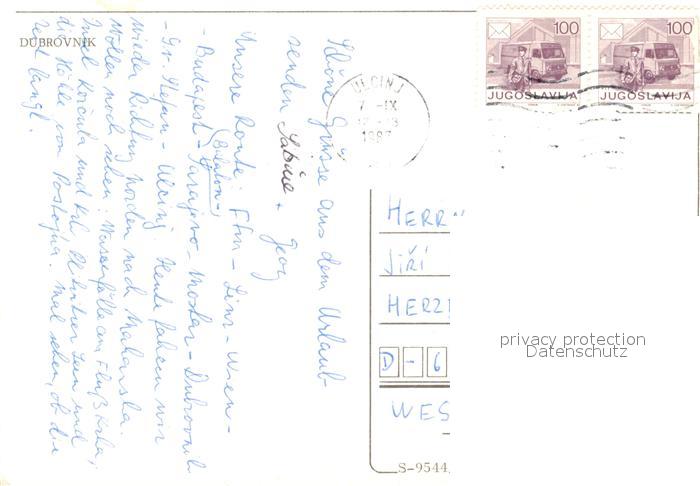 DUBROVNIK
Schöne Grüsse aus dem Urlaub
senden Sabine + Georg
Unsere Route: Ffm - Linz - Wien -
- Budapest - (Balaton-) Sarajevo - Mostar - Dubrovnik
- Sv. Stefan - Ulcinj. Heute fahren wir
wieder Richtung Norden nach Makarska.
Wollen noch sehen: Wasserfälle am Fluß Krka,
Insel Korčula und Plitvitzer Seen und
die Höhle von Postojna. Mal sehen, ob die
Zeit langt.
ULCINJ
7 -IX
1987
100
JUGOSLAVIJA
100
JUGOSLAVIJA
HERR
JIŘÍ
HERZ
D - 6
WES
S-9544
privacy protection
Datenschutz